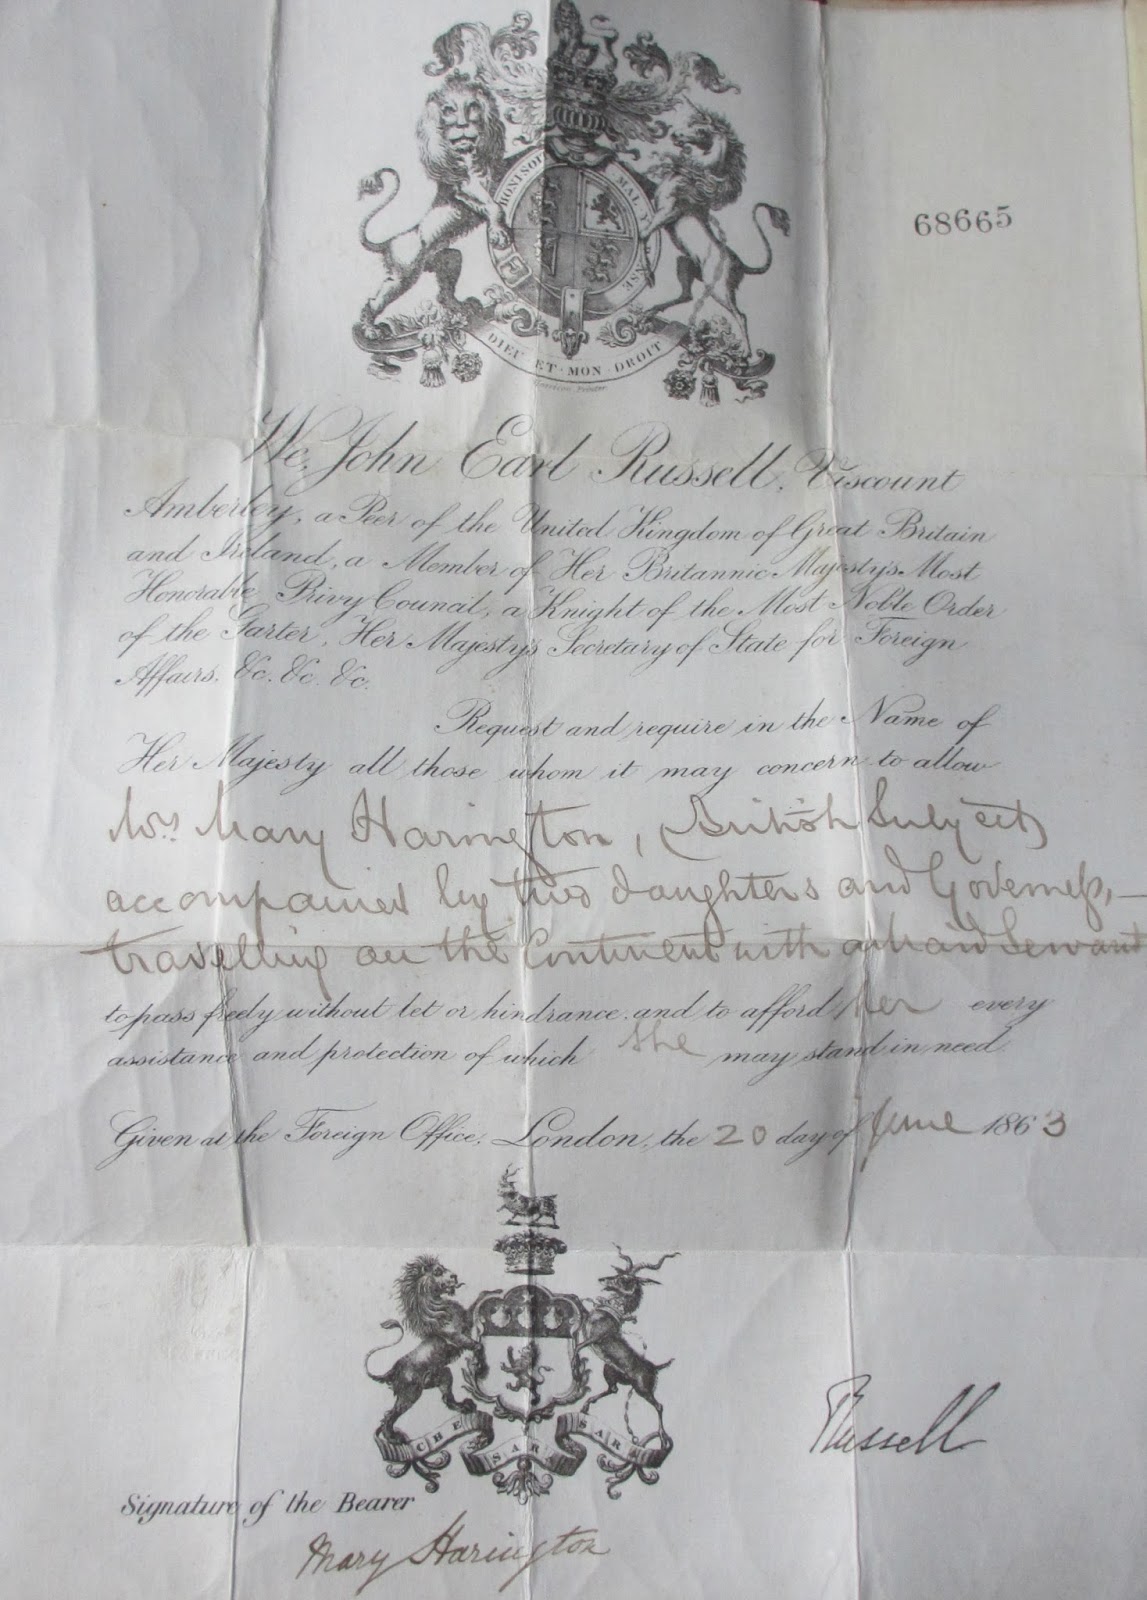 HONI SOI
MAL Y
ENSE
DIEU ET MON DROIT
68665
We, John Earl Russell, Viscount
Amberley, a Peer of the United Kingdom of Great Britain
and Ireland, a Member of Her Britannic Majesty's Most
Honorable Privy Council, a Knight of the Most Noble Order
of the Garter, Her Majesty's Secretary of State for Foreign
Affairs. &c. &c. &c.
Request and require in the Name of
Her Majesty all those whom it may concern to allow
Mrs Mary Harington, (British Subject)
accompanied by two daughters and Governess,—
travelling on the Continent with a Maid Servant
to pass freely without let or hindrance, and to afford her every
assistance and protection of which she may stand in need.
Given at the Foreign Office, London, the 20 day of June 1863
CHE SARA SARA
Russell
Signature of the Bearer
Mary Harington